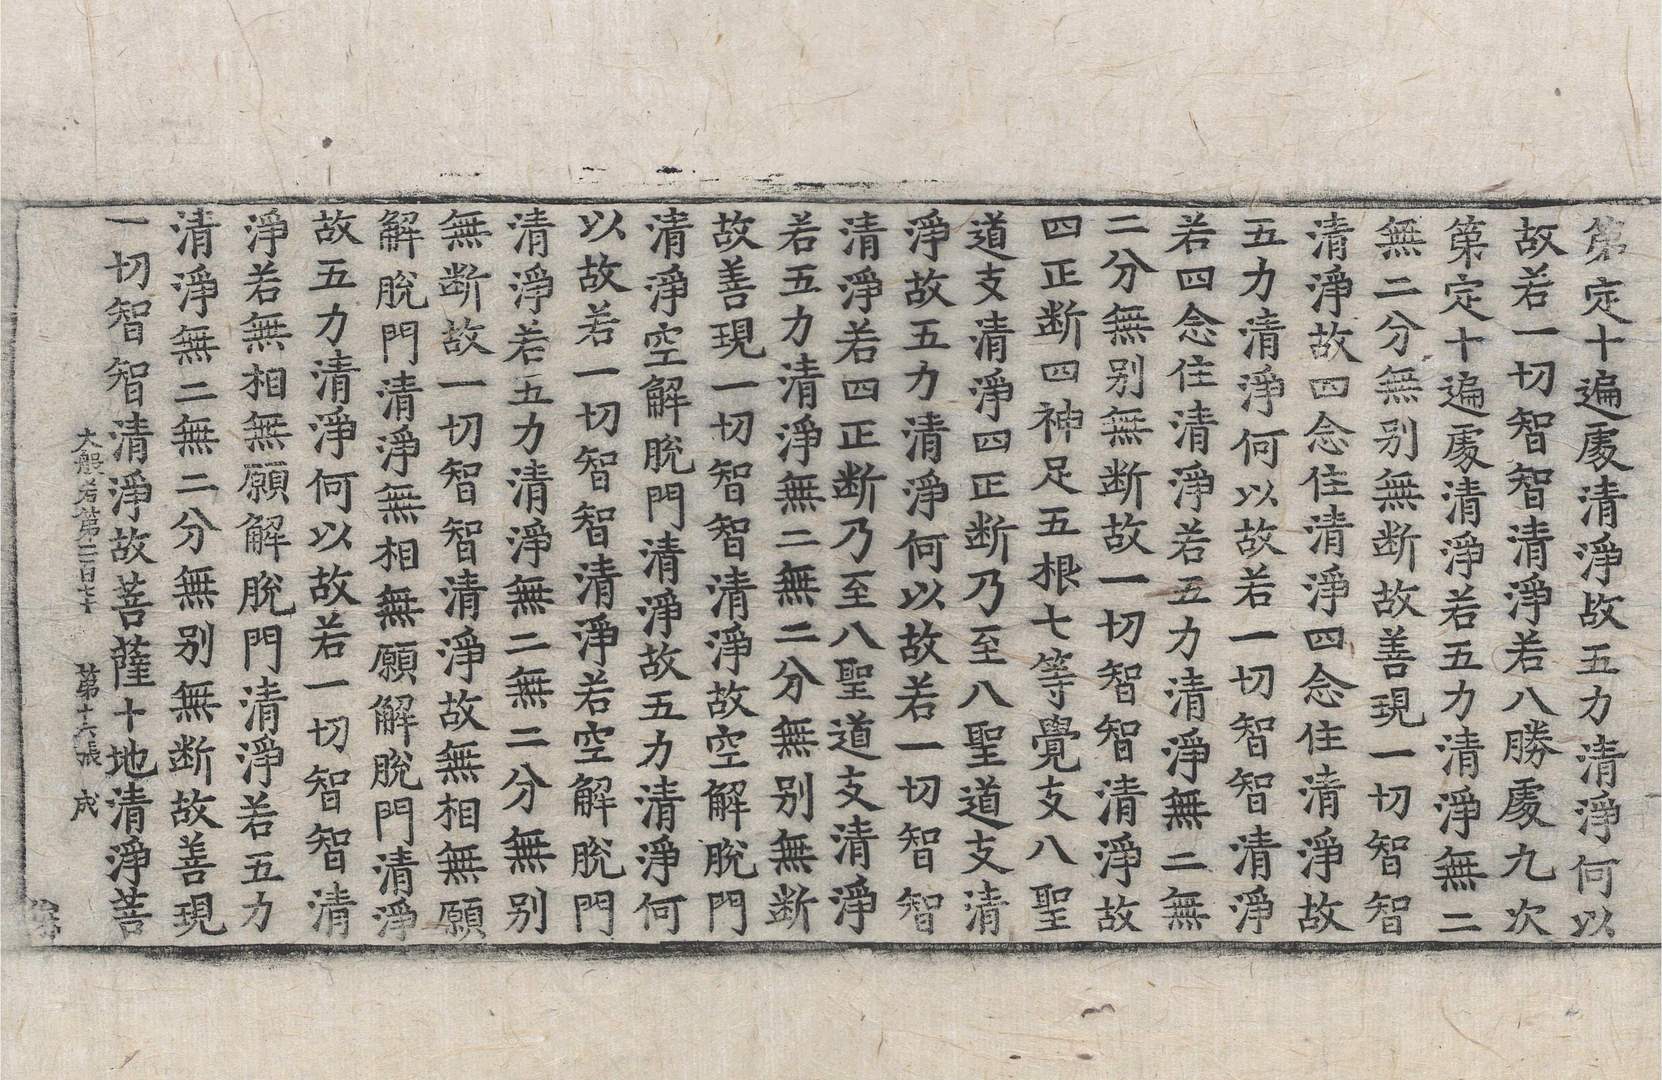 第定十遍處清淨故五力清淨何以
故若一切智智清淨若八勝處九次
第定十遍處清淨若五力清淨無二
無二分無别無断故善現一切智智
清淨故四念住清淨四念住清淨故
五力清淨何以故若一切智智清淨
若四念住清淨若五力清淨無二無
二分無别無断故一切智智清淨故
四正断四神足五根七等覺支八聖
道支清淨四正断乃至八聖道支清
淨故五力清淨何以故若一切智智
清淨若四正断乃至八聖道支清淨
若五力清淨無二無二分無别無断
故善現一切智智清淨故空解脫門
清淨空解脫門清淨故五力清淨何
以故若一切智智清淨若空解脫門
清淨若五力清淨無二無二分無别
無断故一切智智清淨故無相無願
解脫門清淨無相無願解脫門清淨
故五力清淨何以故若一切智智清
淨若無相無願解脫門清淨若五力
清淨無二無二分無别無断故善現
一切智智清淨故菩薩十地清淨菩
大般若第二百七十 第十六張